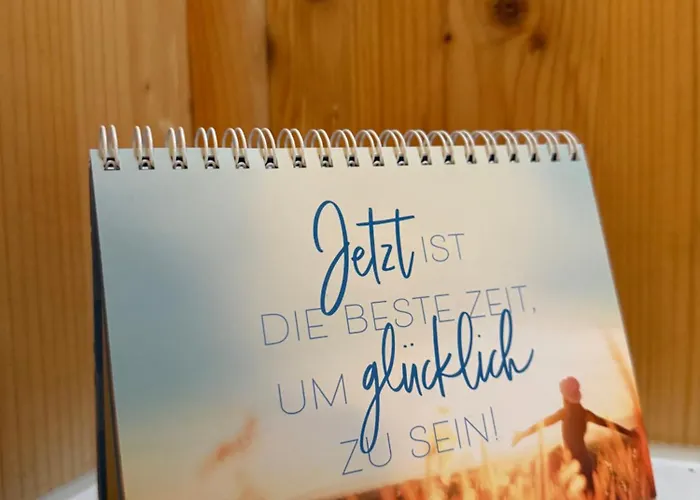 Jetzt IST
DIE BESTE ZEIT,
UM glücklich
ZU SEIN!